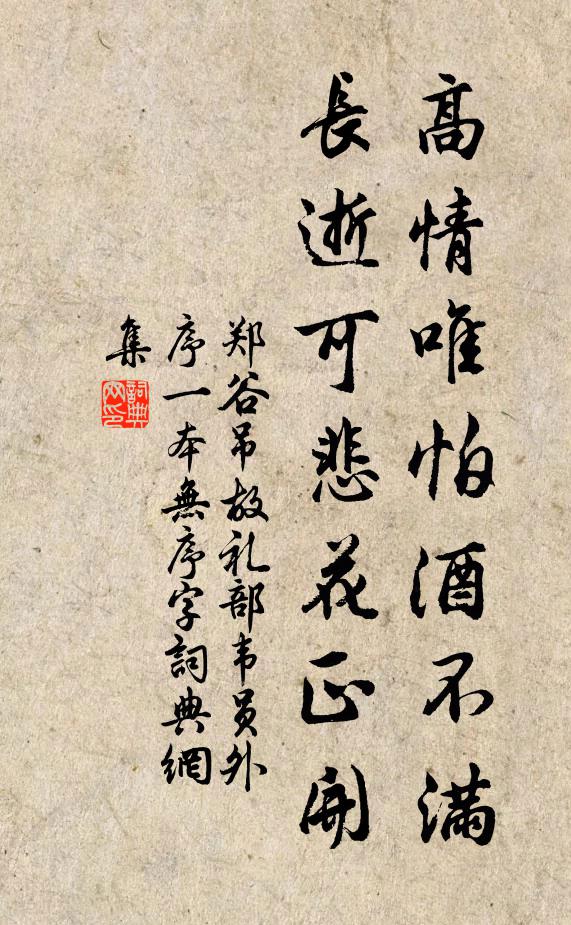 高情唯怕酒不滿
長逝可悲花正開
郑谷吊故礼部韦员外
序一本無序字詞典網
集
詞典网印